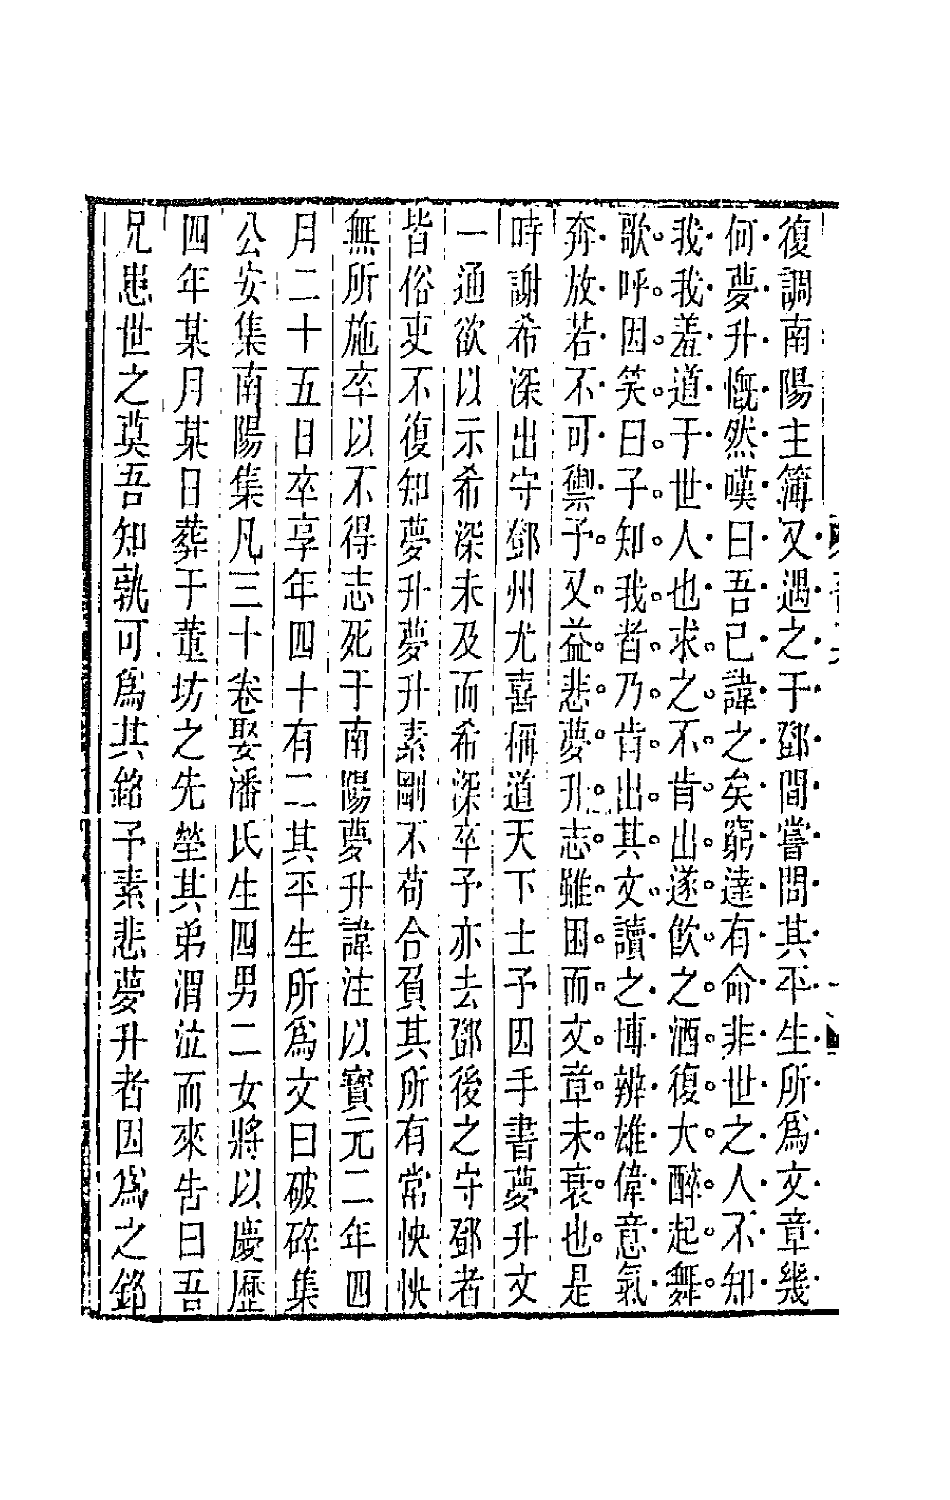 復調南陽主簿又遇之于鄧間嘗問其平生所爲文章幾
何夢升慨然嘆曰吾已諱之矣窮達有命非世之人不知
我我羞道于世人也求之不肯出遂飮之酒復大醉起舞
歌呼因笑曰子知我者乃肯出其文讀之博辨雄偉意氣
奔放若不可禦予又益悲夢升志雖困而文章未衰也是
時謝希深出守鄧州尤喜稱道天下士予因手書夢升文
一通欲以示希深未及而希深卒予亦去鄧後之守鄧者
皆俗吏不復知夢升夢升素剛不苟合負其所有常怏怏
無所施卒以不得志死于南陽夢升諱注以寳元二年四
月二十五日卒享年四十有二其平生所爲文曰破碎集
公安集南陽集凡三十卷娶潘氏生四男二女將以慶歷
四年某月某日葬于董坊之先塋其弟渭泣而來告曰吾
兄患世之莫吾知孰可爲其銘予素悲夢升者因爲之銘